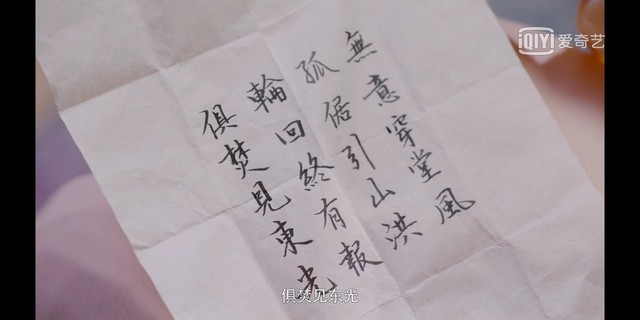 iQIYI 爱奇艺
無意穿堂風
孤倨引山洪
輪回終有報
俱焚見東光
俱焚见东光